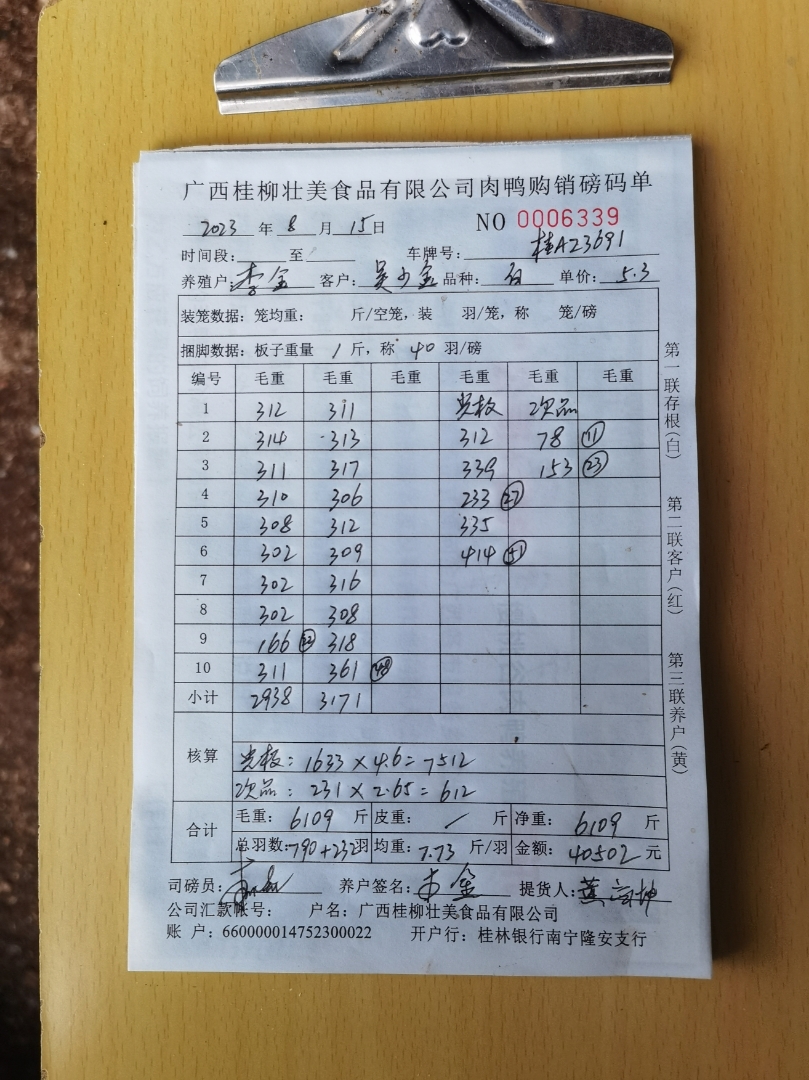 广西桂柳壮美食品有限公司肉鸭购销磅码单
2023 年 8 月 15 日 NO 0006339
时间段: 至 车牌号: 桂A23691
养殖户: 李金 客户: 吴少金 品种: 白 单价: 5.3
装笼数据: 笼均重: 斤/空笼, 装 羽/笼, 称 笼/磅
捆脚数据: 板子重量 1 斤, 称 40 羽/磅
编号 毛重 毛重 毛重 毛重 毛重 毛重
1 312 311 光板 次品
2 314 313 312 78 ⑪
3 311 317 339 153 ㉓
4 310 306 233 ㊲
5 308 312 335
6 302 309 414 ㉛
7 302 316
8 302 308
9 166 ㉒ 318
10 311 361 ㊽
小计 2938 3171
核算
光板: 1633 × 4.6 = 7512
次品: 231 × 2.65 = 612
合计 毛重: 6109 斤 皮重: / 斤 净重: 6109 斤
总羽数: 790+232 羽 均重: 7.73 斤/羽 金额: 40502 元
司磅员: 养户签名: 李金 提货人:
公司汇款帐号: 户名: 广西桂柳壮美食品有限公司
账 户: 660000014752300022 开户行: 桂林银行南宁隆安支行
第一联存根(白)
第二联客户(红)
第三联养户(黄)